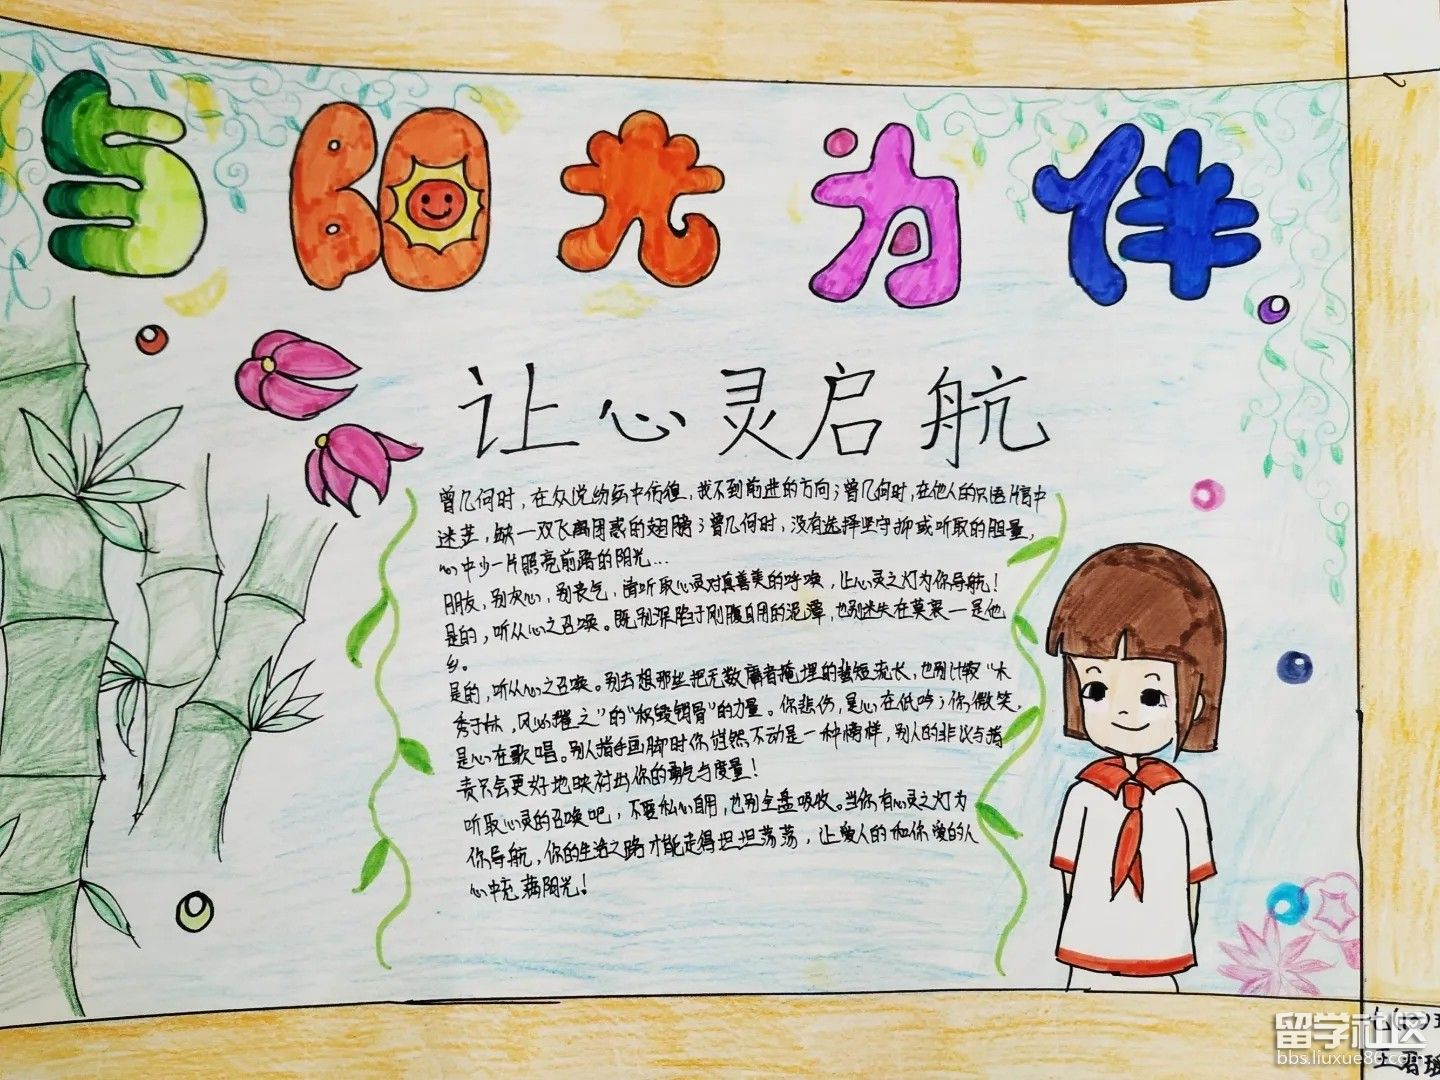 与阳光为伴
让心灵启航
曾几何时，在众说纷纭中彷徨，找不到前进的方向；曾几何时，在他人的只语片言中
迷茫，缺一双飞离困惑的翅膀；曾几何时，没有选择坚守抑或听取的胆量，
心中少一片照亮前路的阳光…
朋友，别灰心，别丧气，请听取心灵对真善美的呼唤，让心灵之灯为你导航！
是的，听从心之召唤。既别深陷于刚腹自用的泥潭，也别迷失在莫衷一是他
乡。
是的，听从心之召唤。别去想那些把无数庸者掩埋的蜚短流长，也别计较“木
秀于林，风必摧之”的“积毁销骨”的力量。你悲伤，是心在低吟；你微笑，
是心在歌唱。别人指手画脚时你岿然不动是一种榜样，别人的非议与指
责只会更好地映衬出你的勇气与度量！
听取心灵的召唤吧，不要私心自用，也别全盘吸收。当你有心灵之灯为
你导航，你的生活之路才能走得坦坦荡荡，让爱人的和你爱的人
心中充满阳光！
七(10)班
王君瑶
留学社区
bbs.liuxue86.com